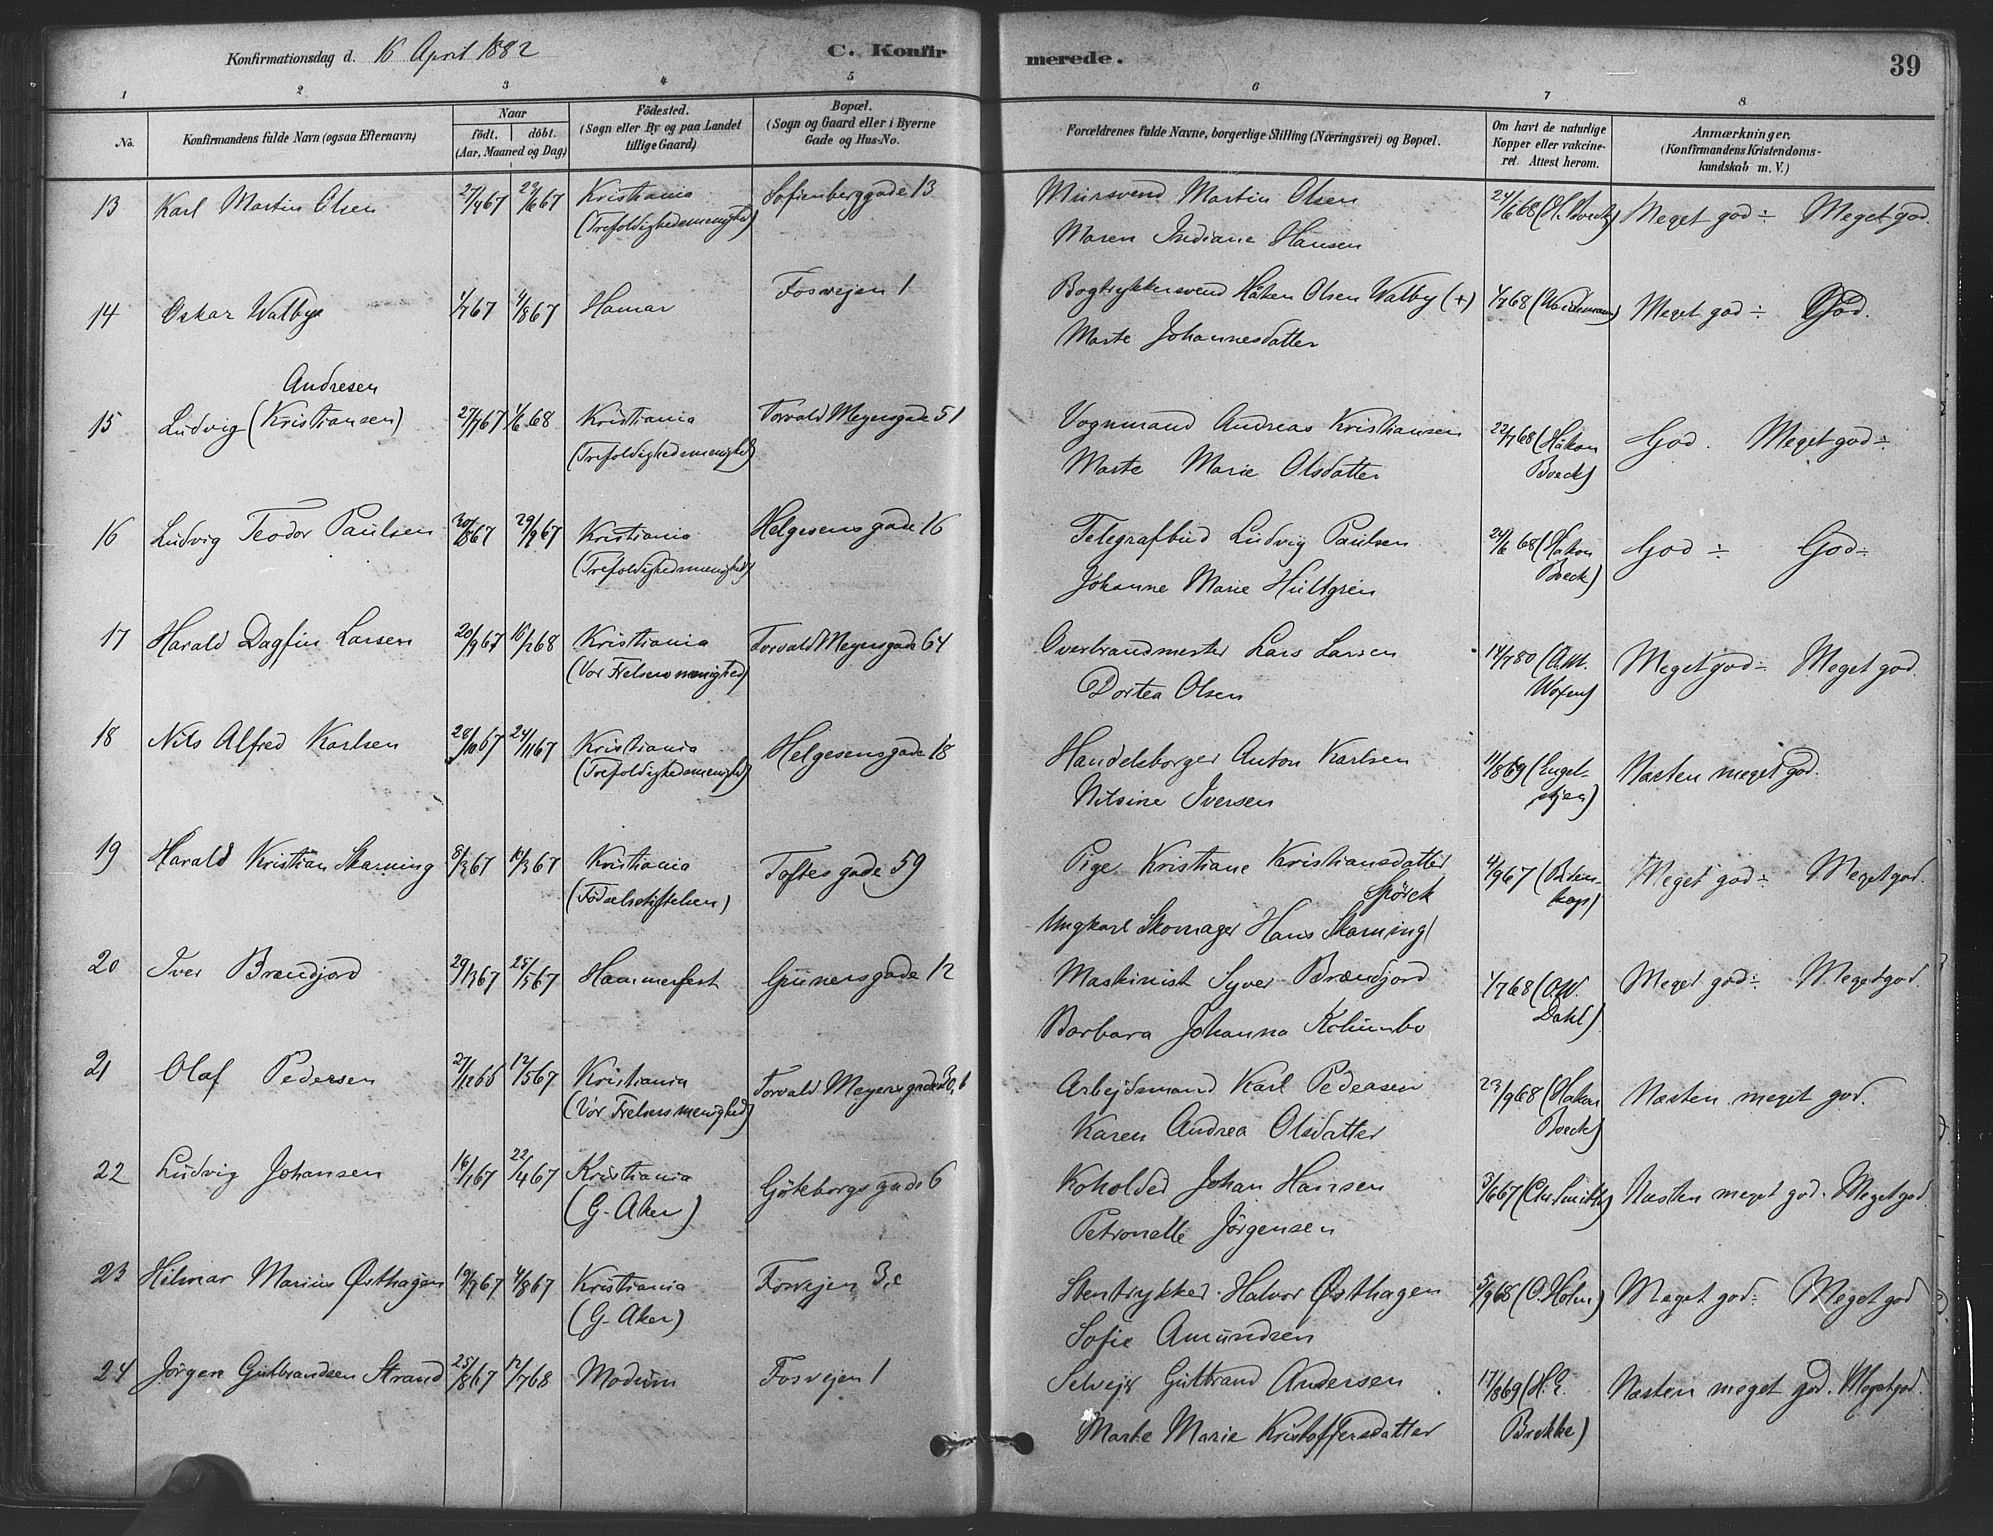 Konfirmationsdag d. 16 April 1882 C. Konfirmerede. 39
1 2 3 4 5 6 7 8
No. Konfirmandens fulde Navn (ogsaa Efternavn) Naar født. døbt. (Aar, Maaned og Dag) Fødested. (Sogn eller By og paa Landet tillige Gaard) Bopæl. (Sogn og Gaard eller i Byerne Gade og Hus-No. Forældrenes fulde Navne, borgerlige Stilling (Næringsvei) og Bopæl. Om havt de naturlige Kopper eller vakcineret. Attest herom. Anmærkninger, (Konfirmandens Kristendomskundskab m. V.)
13 Karl Martin Olsen 27/4 67 23/6 67 Kristiania Sofienberggade 13 Mursvend Martin Olsen 24/6 68 Meget god ÷ Meget god.
(Trefoldighedsmenighed) Maren Indiane Hansen
14 Oskar Walbye 1/7 67 4/8 67 Hamar Fosvejen 1 Bogtrykkersvend Håken Olsen Walby (+) 1/7 68 Meget god ÷ God.
Marte Johannesdatter
Andresen
15 Ludvig (Kristiansen) 27/7 67 1/6 68 Kristiania Torvald Meyersgade 51 Vognmand Andreas Kristiansen 22/7 68 (Håkon God. Meget god ÷
(Trefoldighedsmenighed) Marte Marie Olsdatter Boeck)
16 Ludvig Teodor Paulsen 29/9 67 Kristiania Helgesens gade 16 Telegrafbud Ludvig Paulsen 24/6 68 (Håkon God ÷ God ÷
(Trefoldighedsmenighed) Johanne Marie Hultgren Boeck)
17 Harald Dagfin Larsen 20/9 67 16/2 68 Kristiania Torvald Meyersgade 64 Overbrandmester Lars Larsen 14/7 80 (O.M. Meget god ÷ Meget god.
(Vor Frelsers menighed) Dortea Olsen
18 Nils Alfred Karlsen 28/10 67 24/11 67 Kristiania Helgesensgade 18 Handelsborger Anton Karlsen 11/8 69 (Engel- Næsten meget god.
(Trefoldighedsmenighed) Nilsine Iversen skjøn)
19 Harald Kristian Skarning 8/3 67 10/3 67 Kristiania Toftes gade 59 Pige Kristiane Kristiansdatter 4/9 67 Meget god ÷ Meget god.
(Fødselsstiftelsen) Spörck
Ungkarl Skomager Hans Skarning
20 Iver Brændjord 29/3 67 25/5 67 Hammerfest Grünersgade 12 Maskinist Syver Brændjord 1/7 68 (O.W. Meget god ÷ Meget god.
Barbara Johanna Kolumbo Dahl)
21 Olaf Pedersen 27/12 66 12/5 67 Kristiania Torvald Meyers gade 30,b Arbejdsmand Karl Pedersen 23/9 68 (Håkon Næsten meget god.
(Vor Frelsers menighed) Karen Andrea Olsdatter Boeck)
22 Ludvig Johansen 16/1 67 22/4 67 Kristiania Göteborgs gade 6 Koholder Johan Hansen 3/6 67 (Chr. Smith) Næsten meget god. Meget god
(G. Aker) Petronelle Jørgensen
23 Hilmar Marius Østhagen 4/8 67 Kristiania Fosvejen 3,c Stentrykker Halvor Østhagen 5/9 68 (O. Holm) Meget god ÷ Meget god
(G. Aker) Sofie Amundsen
24 Jørgen Gulbrandsen Strand 25/8 67 12/7 68 Modum Fosvejen 1 Selvejer Gulbrand Andersen 17/8 69 (H.E. Næsten meget god. Meget god.
Marte Marie Kristoffersdatter Brekke)